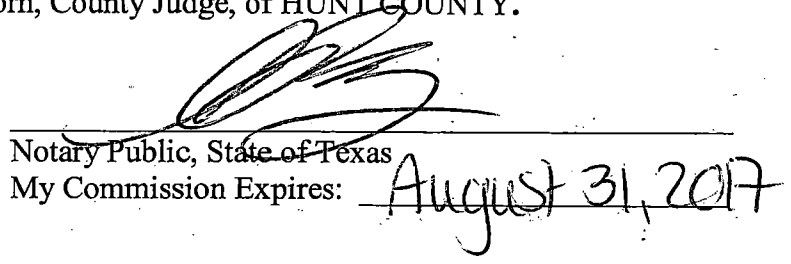 orn, County Judge, of HUNT COUNTY.
Notary Public, State of Texas
My Commission Expires: August 31, 2017